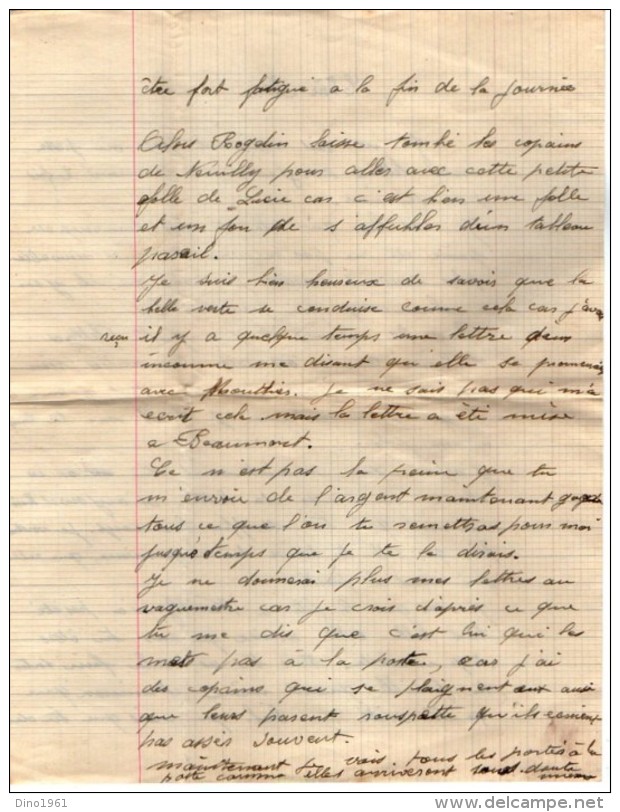 être fort fatigué a la fin de la journée
Alors Rogdin laisse tombé les copains
de Neuilly pour aller avec cette petite
folle de Lucie car c'est bien une folle
et un fou de s'affubler d'un tableau
pareil.
Je suis bien heureux de savoir que la
belle verte se conduise comme cela car j'avai
reçu
il y a quelque temps une lettre d'un
inconnu me disant qu'elle se promenais
avec Mouthier. Je ne sais pas qui m'a
ecrit cela mais la lettre a été mise
a Beaumont.
Ce n'est pas la peine que tu
m'envoie de l'argent maintenant garde
tous ce que l'on te remettras pour moi
jusqu'è temps que je te le dirais.
Je ne donnerai plus mes lettres au
vaguemestre car je crois d'après ce que
tu me dis que c'est lui qui les
mets pas à la poste, car j'ai
des copains qui se plaignent aux aussi
que leurs parent rouspette qu'ils écrivent
pas assés souvent.
maintenant je vais tous les portés à la
poste comme elles arriveront sans doute mieux
Dino1961